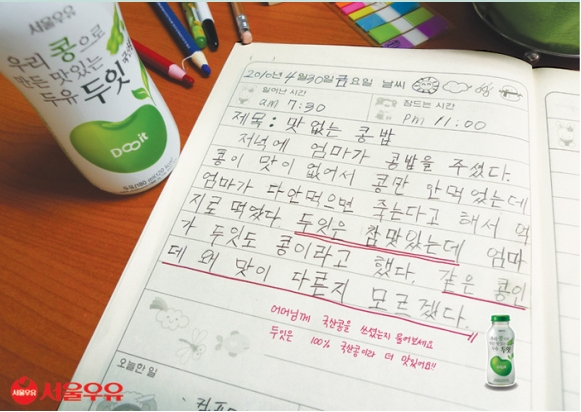 서울우유
우리 콩으로
만든 맛있는
두유 두잇
Dooit
2010년 4월 30일 금요일 날씨
일어난 시간
am 7:30
잠드는 시간
pm 11:00
제목: 맛 없는 콩밥
저녁에 엄마가 콩밥을 주셨다.
콩이 맛이 없어서 콩만 안먹었는데
엄마가 다 안먹으면 죽는다고 해서 먹
지로 먹었다. 두잇은 참 맛있는데 엄마
가 두잇도 콩이라고 했다. 같은 콩인
데 왜 맛이 다른지 모르겠다.
어머님께 국산콩을 쓰셨는지 물어보세요
두잇은 100% 국산콩이라 더 맛있어요!!
오늘한 일
서울우유
서울우유